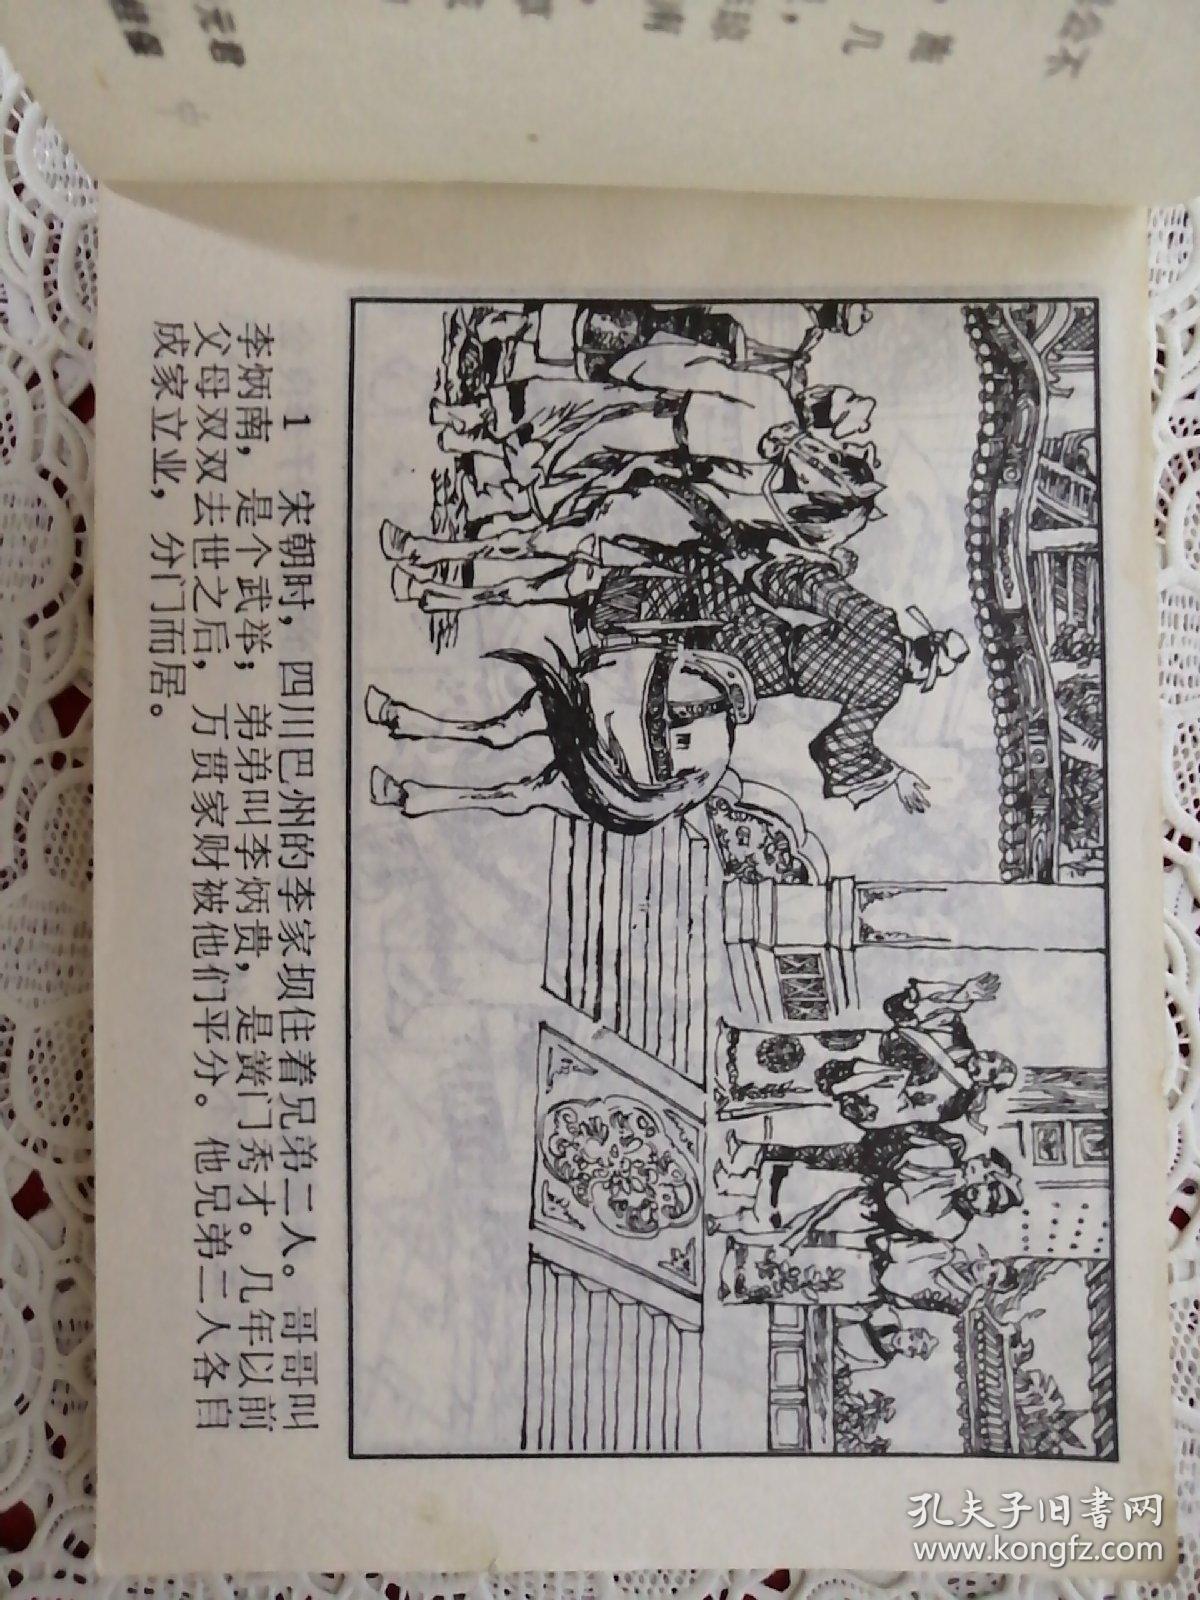 1 宋朝时，四川巴州的李家坝住着兄弟二人。哥哥叫
李炳南，是个武举；弟弟叫李炳贵，是黉门秀才。几年以前
父母双双去世之后，万贯家财被他们平分。他兄弟二人各自
成家立业，分门而居。
孔夫子旧书网
www.kongfz.com